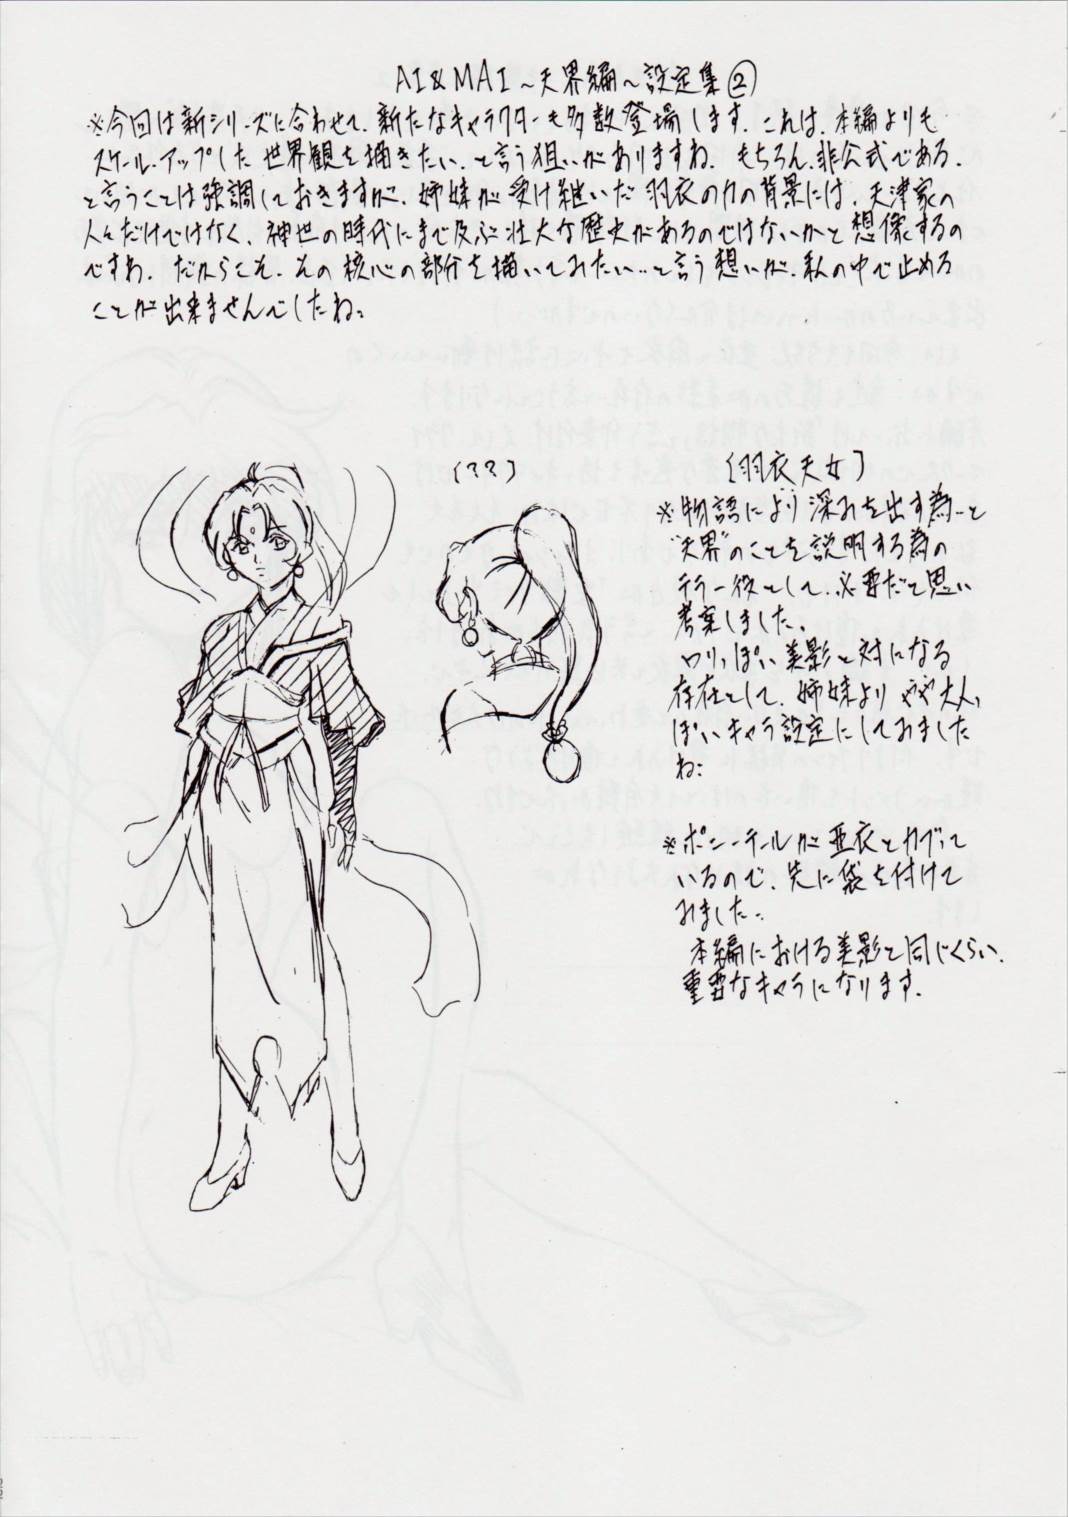 AI&MAI～天界編～設定集②
※今回は新シリーズに合わせて、新たなキャラクターも多数登場します。これは、本編よりも
スケールアップした世界観を描きたい、と言う狙いがありますね。もちろん、非公式である、
と言うことは強調しておきますが、姉妹が受け継いだ羽衣の力の背景には、天津家の
人々だけではなく、神世の時代にまで及ぶ壮大な歴史があるのではないかと想像するの
ですわ。だからこそ、その核心の部分を描いてみたい…と言う想いが、私の中で止める
ことが出来ませんでしたね。
(??)
[羽衣天女]
※物語により深みを出す為…と
"天界"のことを説明する為の
テラー役として、必要だと思い
考案しました。
ワリっぽい美影と対になる
存在として、姉妹よりやや大人っ
ぽいキャラ設定にしてみました
ね。
※ポニーテールが亜衣とカブって
いるので、先に袋を付けて
みました。
本編における美影と同じくらい、
重要なキャラになります。